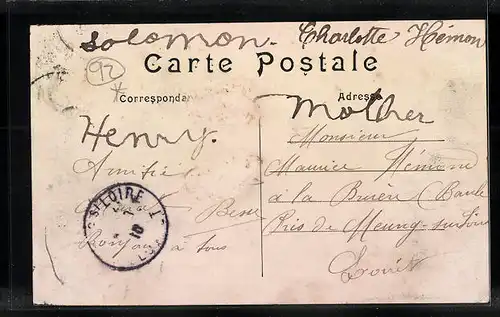 Solomon. Charlotte Hémon
92
Carte Postale
Correspondan Adresse
Mother
Henry.
Monsieur
Amitiés Maurice Hémon
à la Bruère (Baule
Près de Meung-sur-Loire
Bonjour à tous
Loiret
S/LOIRE
10